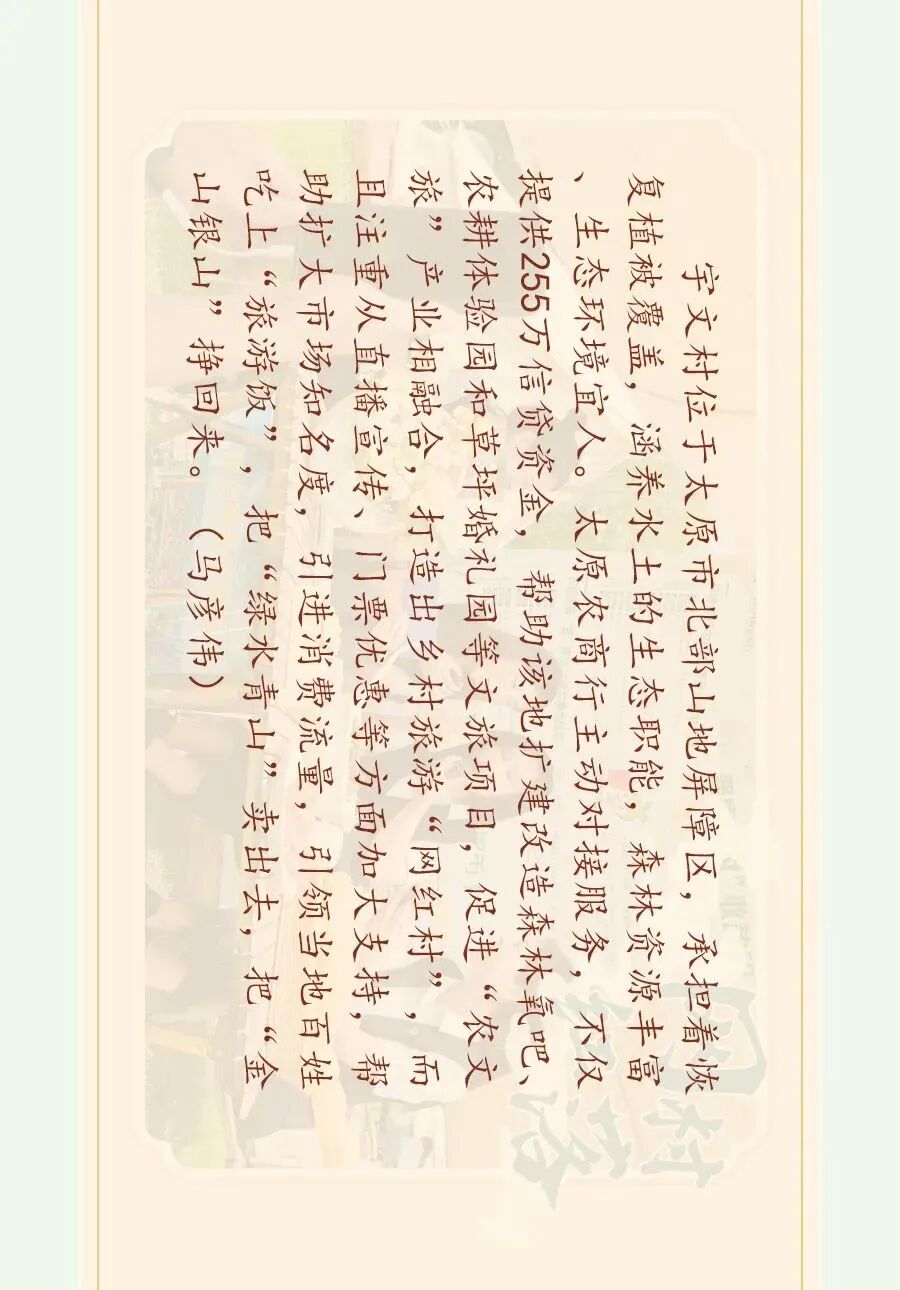 宇文村位于太原市北部山地屏障区，承担着恢
复植被覆盖，涵养水土的生态职能，森林资源丰富
、生态环境宜人。太原农商行主动对接服务，不仅
提供255万信贷资金，帮助该地扩建改造森林氧吧、
农耕体验园和草坪婚礼园等文旅项目，促进“农文
旅”产业相融合，打造出乡村旅游“网红村”，而
且注重从直播宣传、门票优惠等方面加大支持，帮
助扩大市场知名度，引进消费流量，引领当地百姓
吃上“旅游饭”，把“绿水青山”卖出去，把“金
山银山”挣回来。（马彦伟）